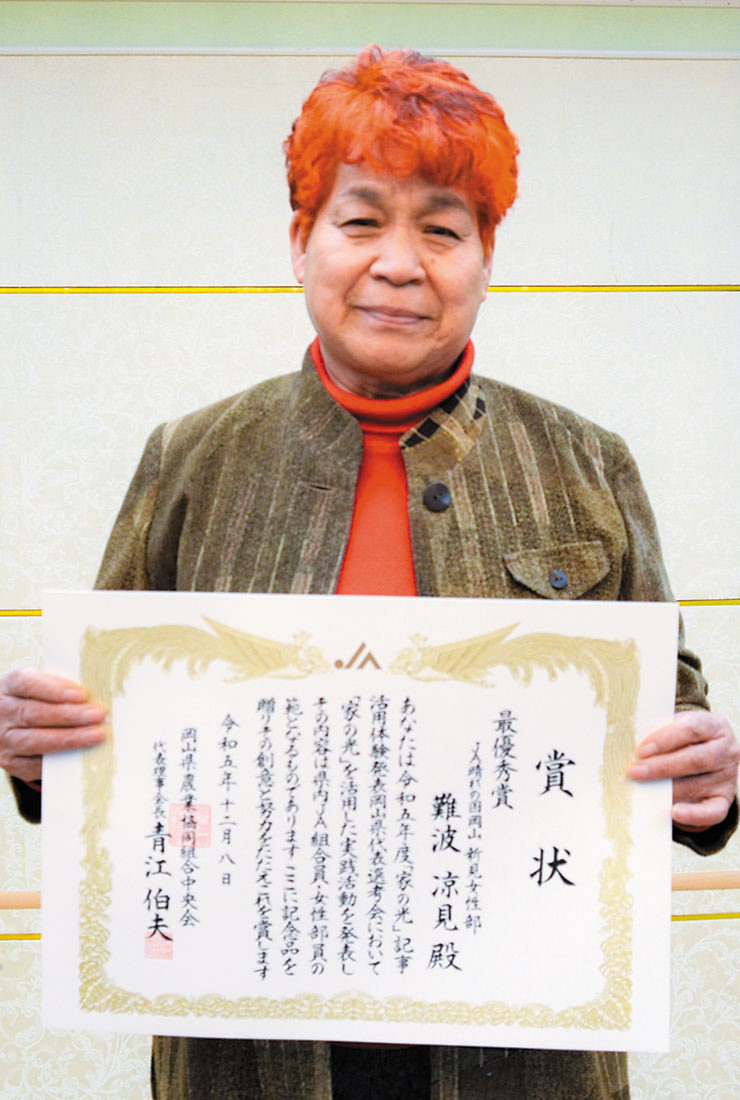 賞状
最優秀賞
JA晴れの国岡山 新見女性部
難波 凉見 殿
あなたは令和五年度「家の光」記事
活用体験発表岡山県代表選考会において
「家の光」を活用した実践活動を発表し
その内容は県内JA組合員・女性部員の
範となるものであります ここに記念品を
贈りその創意と努力をたたえこれを賞します
令和五年十二月八日
岡山県農業協同組合中央会
代表理事会長 青江 伯夫